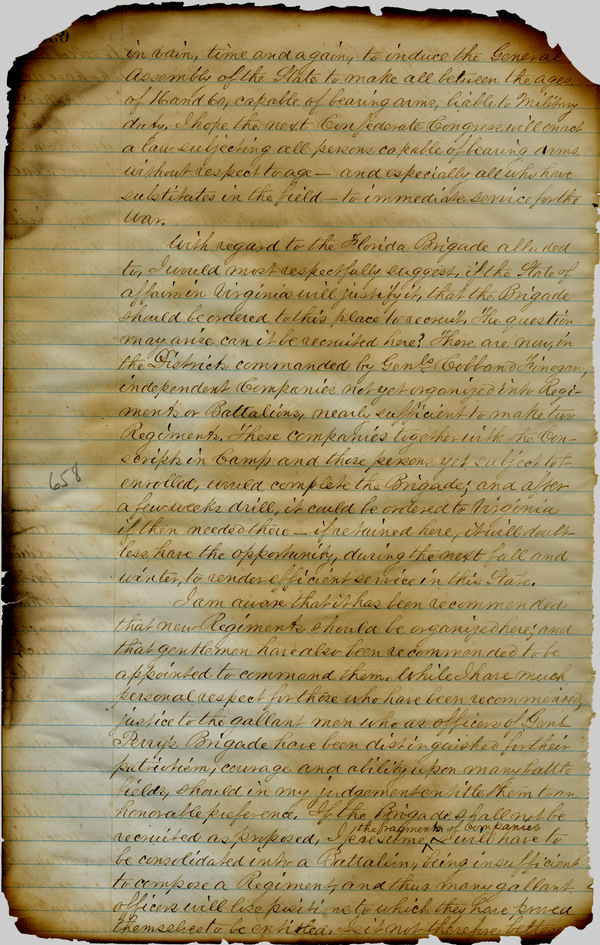 in vain, time and again, to induce the General
Assembly of the State to make all between the ages
of 16 and 60, capable of bearing arms, liable to Military
duty, I hope the next Confederate Congress will enact
a law subjecting all persons capable of bearing arms
without respect to age — and especially all who have
substitutes in the field — to immediate service for the
war.
With regard to the Florida Brigade alluded
to, I would most respectfully suggest, if the State of
affairs in Virginia will justify it, that the Brigade
should be ordered to this place to recruit. The question
may arise can it be recruited here? There are now, in
the Districts commanded by Genls. Cobb and Finegan,
independent Companies not yet organized into Regi-
ments or Battalions, nearly sufficient to make two
Regiments. These companies together with the Con-
scripts in Camp and those persons yet subject to
enrolled, would complete the Brigade; and after
a few weeks drill, it could be ordered to Virginia
658
if then needed there — if retained here, it will doubt-
less have the opportunity, during the next fall and
winter, to render efficient service in this State.
I am aware that it has been recommended
that new Regiments should be organized here; and
that gentlemen have also been recommended to be
appointed to command them. While I have much
personal respect for those who have been recommended,
justice to the gallant men who as officers of Genl.
Perry's Brigade have been distinguished for their
patriotism, courage and ability upon many battle
fields, should in my judgement entitle them to an
honorable preference. If the Brigade shall not be
recruited as proposed, I presume the fragments of Companies will have to
be consolidated into a Battalion, being insufficient
to compose a Regiment, and thus many gallant
officers will lose positions to which they have proved
themselves to be entitled. Is it not therefore better